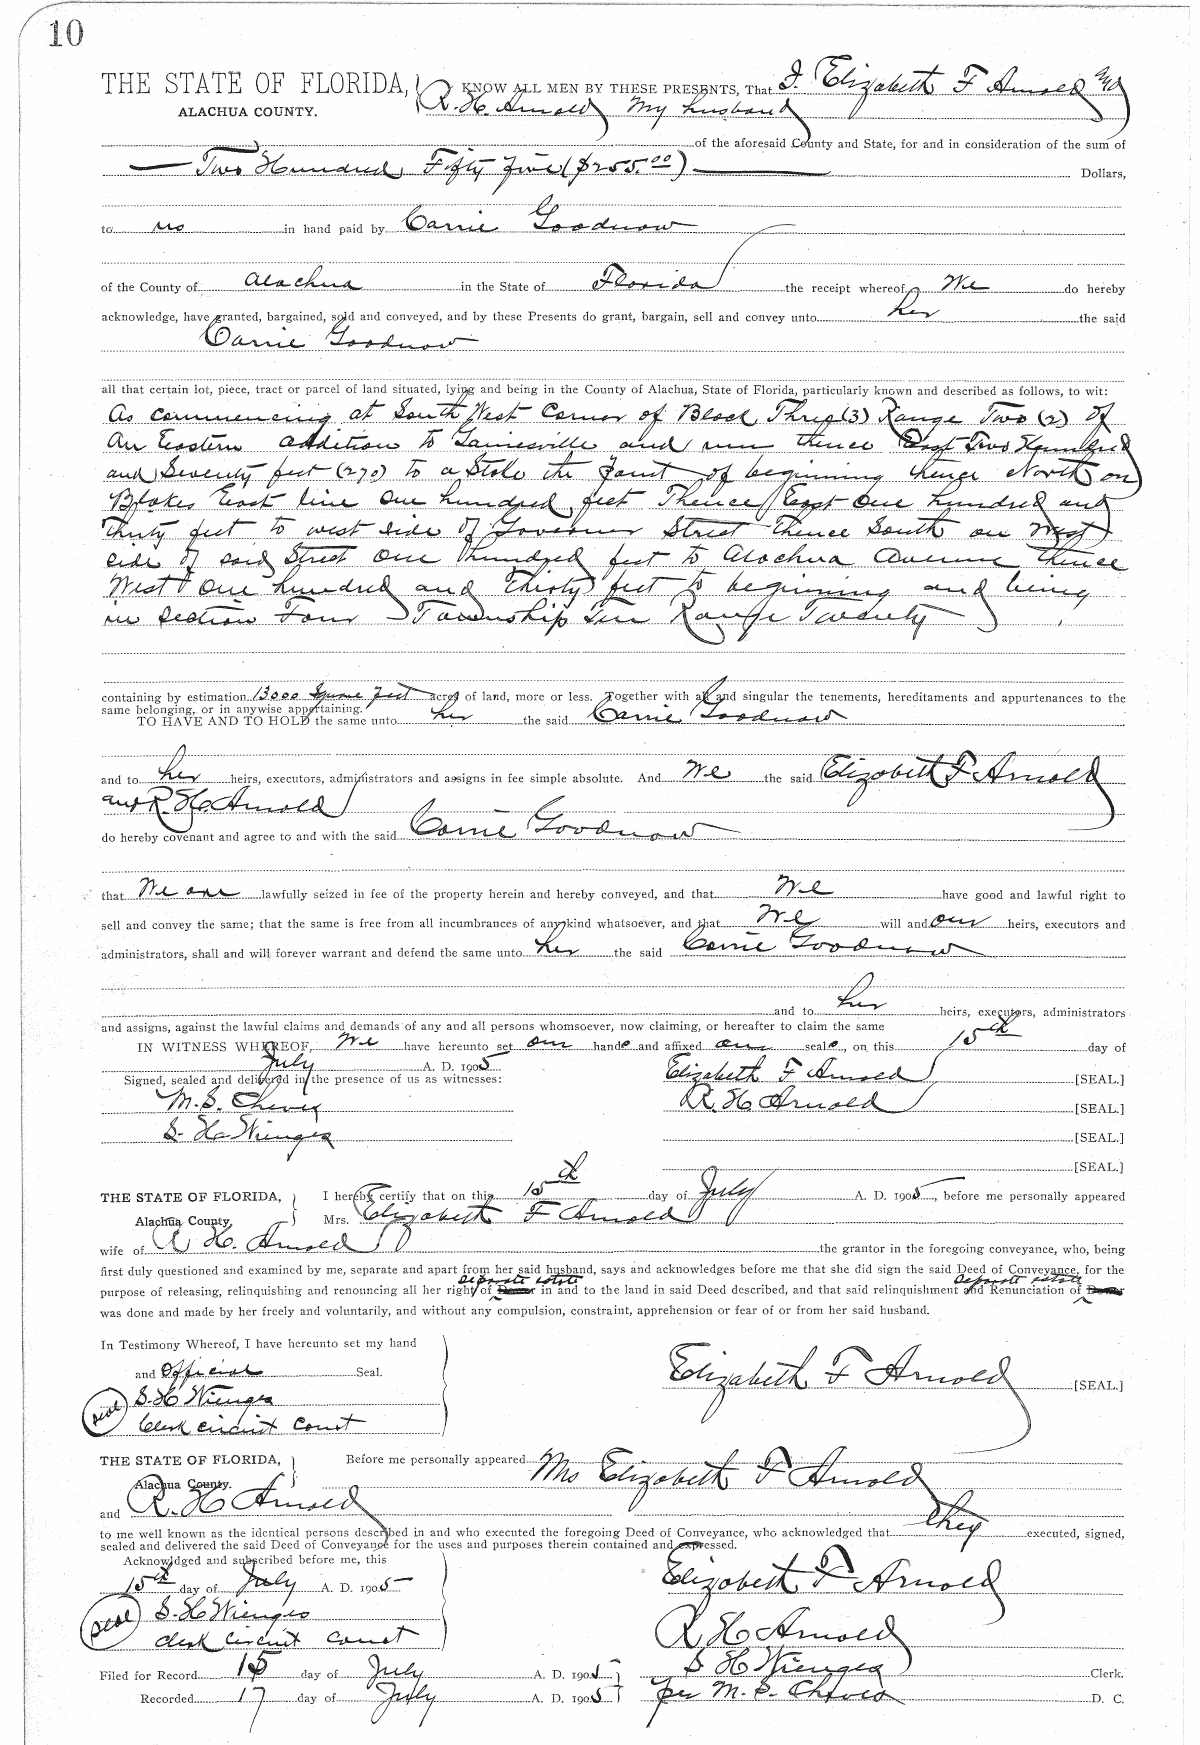 10
THE STATE OF FLORIDA, KNOW ALL MEN BY THESE PRESENTS, That I, Elizabeth F Arnold and
ALACHUA COUNTY. R. H. Arnold my husband
of the aforesaid County and State, for and in consideration of the sum of
Two Hundred, Fifty five ($255.00) Dollars,
to us in hand paid by Carrie Goodnow
of the County of Alachua in the State of Florida the receipt whereof We do hereby
acknowledge, have granted, bargained, sold and conveyed, and by these Presents do grant, bargain, sell and convey unto her the said
Carrie Goodnow
all that certain lot, piece, tract or parcel of land situated, lying and being in the County of Alachua, State of Florida, particularly known and described as follows, to wit:
As commencing at South West Corner of Block Three (3) Range Two (2) of
An Eastern addition to Gainesville and run thence East Two Hundred
and Seventy feet (270) to a Stake the point of beginning thence North on
Blakes East line One hundred feet Thence East One hundred and
Thirty feet to west side of Governor Street Thence South on West
side of said Street One hundred feet to Alachua Avenue thence
West One hundred and Thirty feet to beginning and being
in Section Four Township Ten Range Twenty
containing by estimation 13000 Square feet acres of land, more or less. Together with all and singular the tenements, hereditaments and appurtenances to the
same belonging, or in anywise appertaining.
TO HAVE AND TO HOLD the same unto her the said Carrie Goodnow
and to her heirs, executors, administrators and assigns in fee simple absolute. And We the said Elizabeth F Arnold
and R. H. Arnold
do hereby covenant and agree to and with the said Carrie Goodnow
that We are lawfully seized in fee of the property herein and hereby conveyed, and that We have good and lawful right to
sell and convey the same; that the same is free from all incumbrances of any kind whatsoever, and that We will and our heirs, executors and
administrators, shall and will forever warrant and defend the same unto her the said Carrie Goodnow
and to her heirs, executors, administrators
and assigns, against the lawful claims and demands of any and all persons whomsoever, now claiming, or hereafter to claim the same
IN WITNESS WHEREOF, We have hereunto set our hands and affixed our seals, on this 15th day of
July A. D. 1905
Signed, sealed and delivered in the presence of us as witnesses: Elizabeth F Arnold [SEAL.]
M. S. Cheves R. H. Arnold [SEAL.]
S. H. Wienges [SEAL.]
[SEAL.]
THE STATE OF FLORIDA, I hereby certify that on this 15th day of July A. D. 1905, before me personally appeared
Alachua County. Mrs. Elizabeth F Arnold
wife of R H. Arnold the grantor in the foregoing conveyance, who, being
first duly questioned and examined by me, separate and apart from her said husband, says and acknowledges before me that she did sign the said Deed of Conveyance, for the
separate estate separate estate
purpose of releasing, relinquishing and renouncing all her right of Dower in and to the land in said Deed described, and that said relinquishment and Renunciation of Dower
was done and made by her freely and voluntarily, and without any compulsion, constraint, apprehension or fear of or from her said husband.
In Testimony Whereof, I have hereunto set my hand
and Official Seal. Elizabeth F Arnold [SEAL.]
S. H Wienges
seal Clerk circuit Court
THE STATE OF FLORIDA, Before me personally appeared Mrs Elizabeth F Arnold
Alachua County.
and R. H Arnold
to me well known as the identical persons described in and who executed the foregoing Deed of Conveyance, who acknowledged that they executed, signed,
sealed and delivered the said Deed of Conveyance for the uses and purposes therein contained and expressed.
Acknowldged and subscribed before me, this
15th day of July A. D. 1905 Elizabeth F Arnold
seal S. H Wienges
clerk Circuit Court R H Arnold
Filed for Record 15 day of July A. D. 1905 S H Wienges Clerk.
Recorded 17 day of July A. D. 1905 per M. S. Cheves D. C.